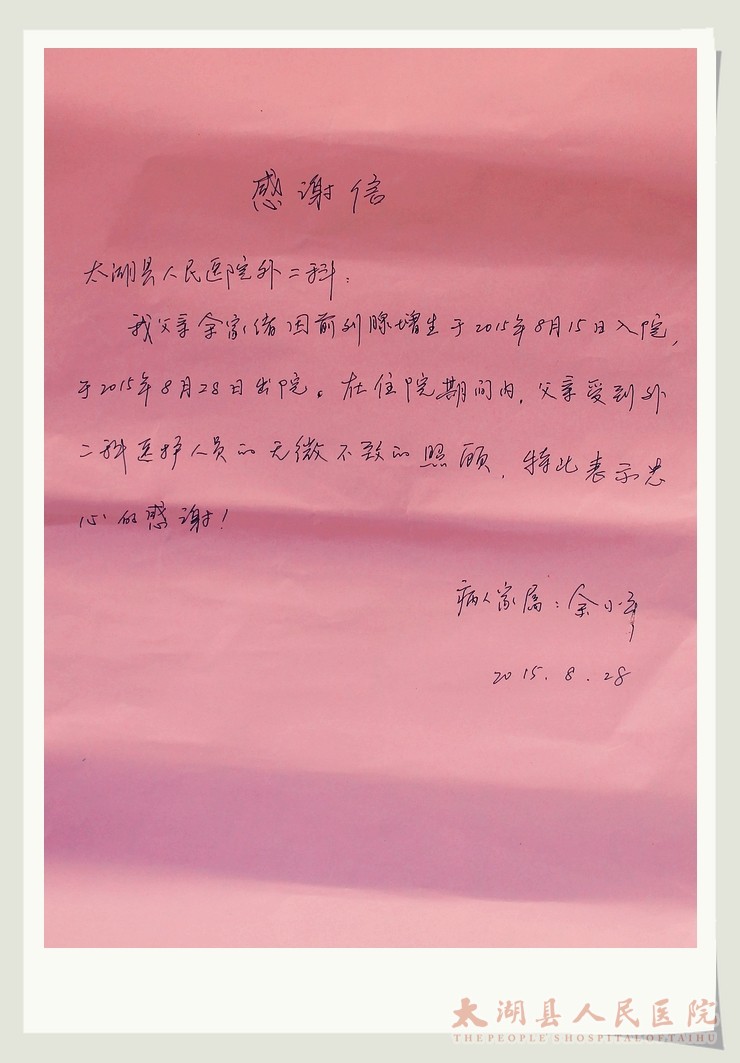 感谢信
太湖县人民医院外二科：
我父亲余家绪因前列腺增生于2015年8月15日入院，
于2015年8月28日出院。在住院期间内，父亲受到外
二科医护人员的无微不致的照顾，特此表示忠
心的感谢！
病人家属：余小
2015.8.28
太湖县人民医院
THE PEOPLE'S HOSPITAL OF TAIHU